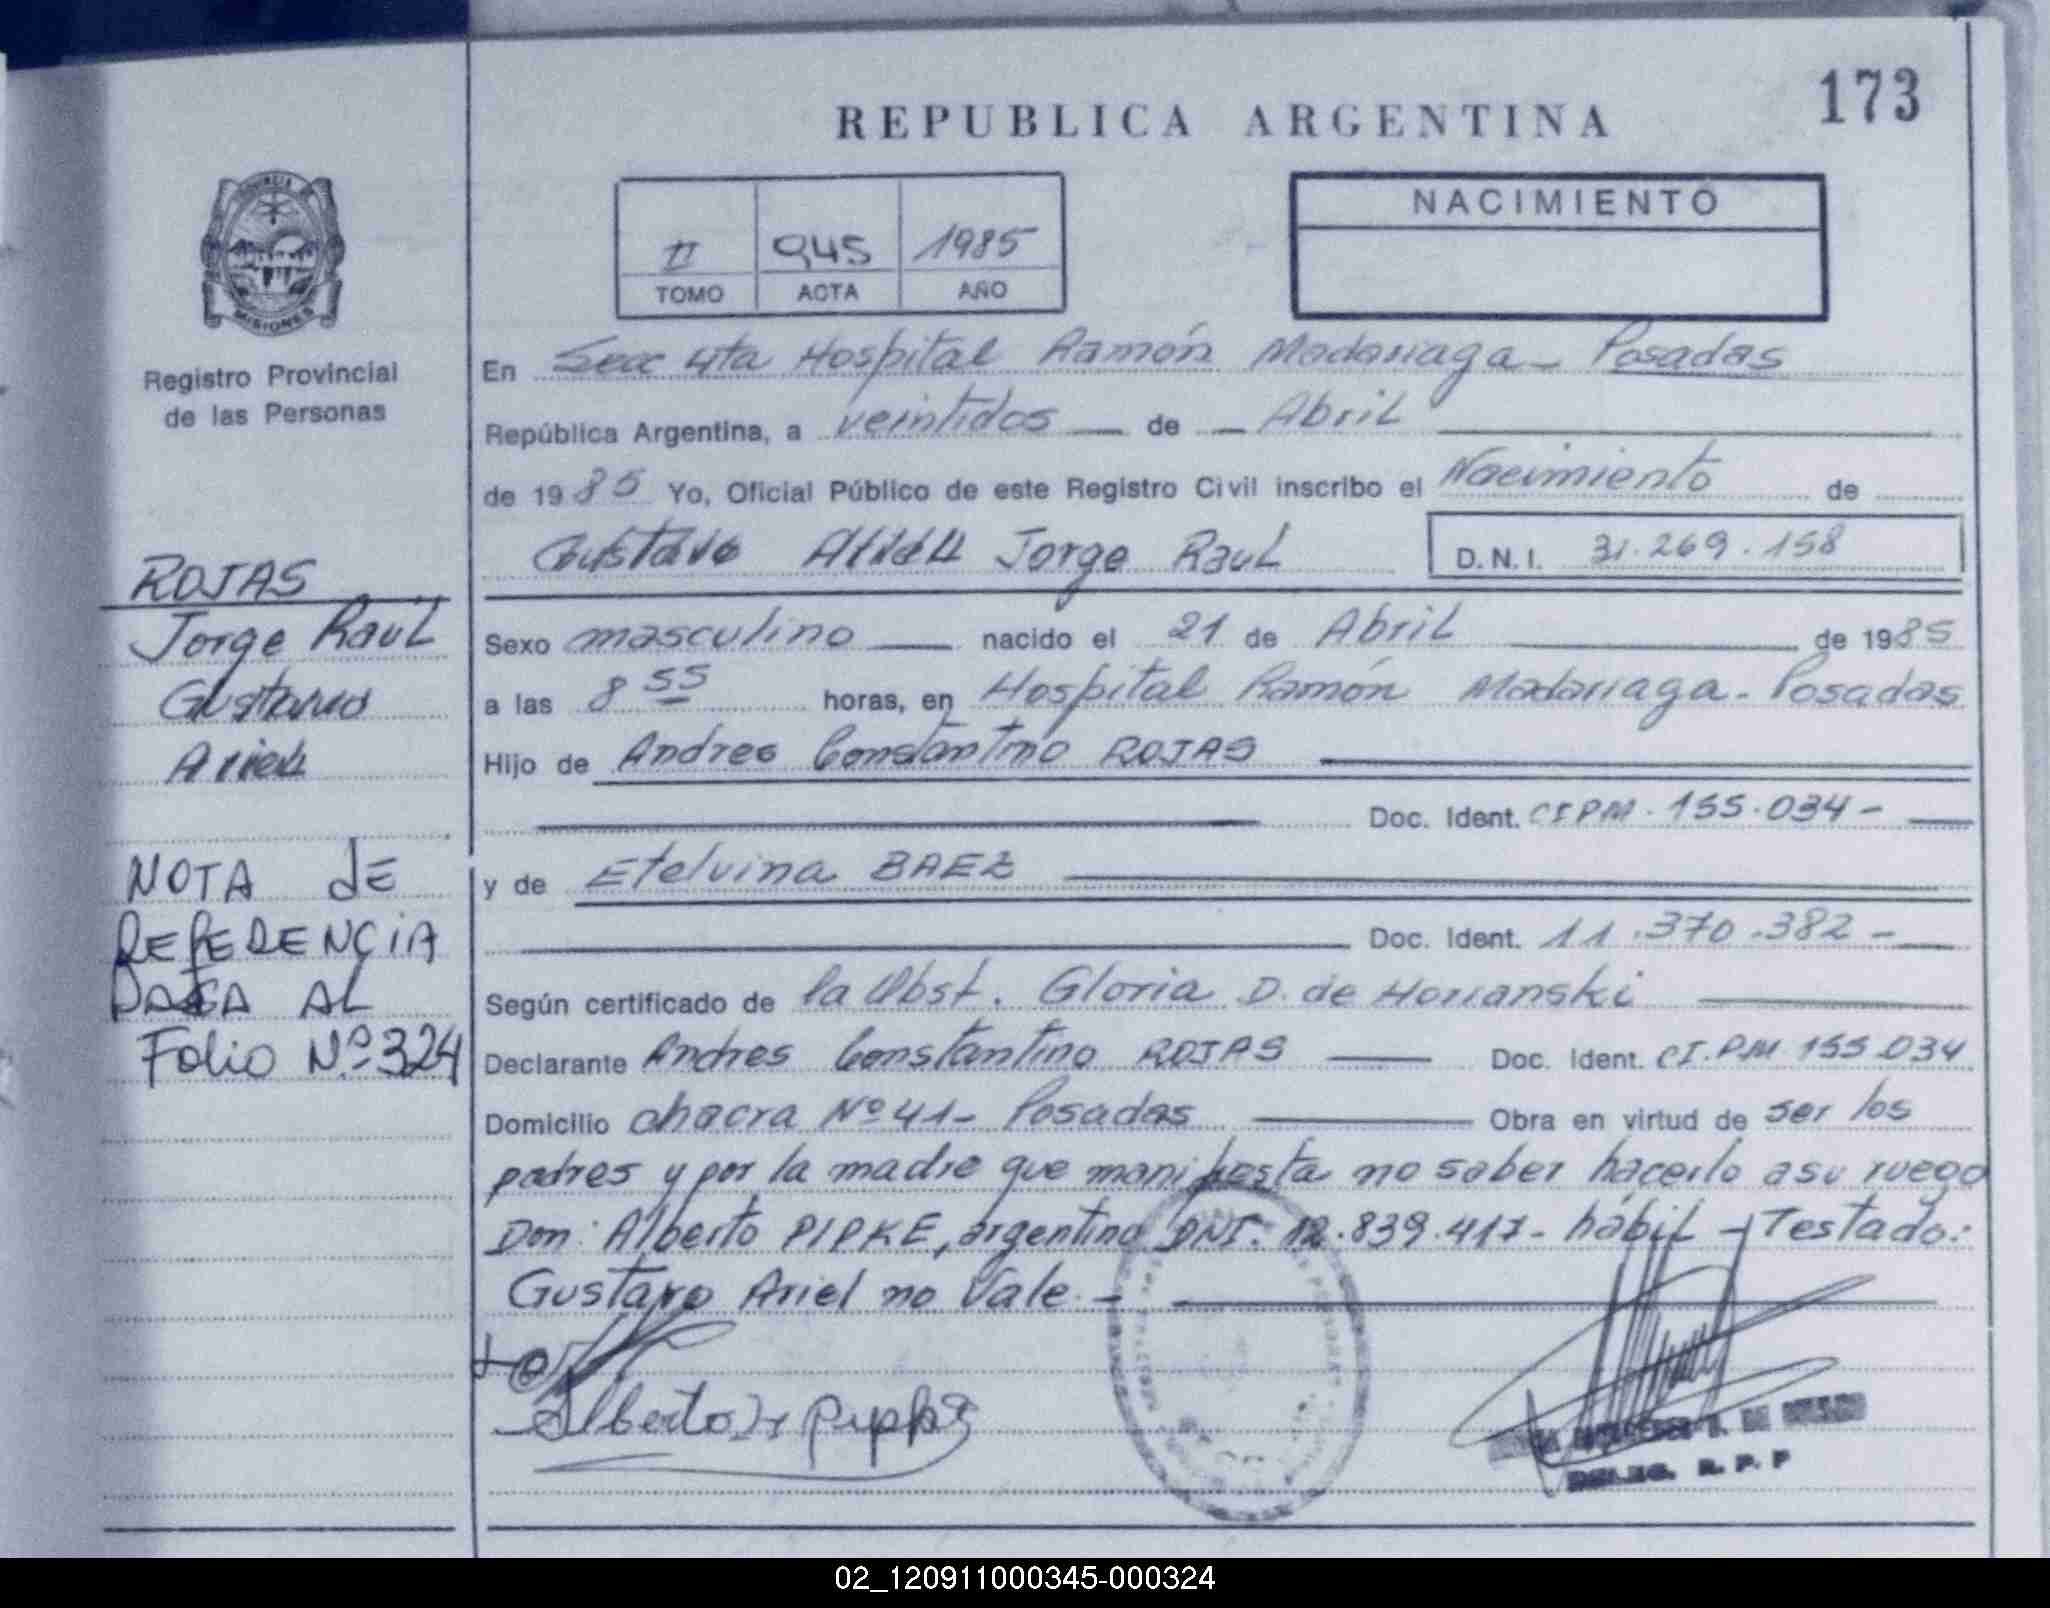 173
REPUBLICA ARGENTINA
NACIMIENTO
II 945 1985
TOMO ACTA AÑO
PROVINCIA DE
MISIONES
Registro Provincial
de las Personas
ROJAS
Jorge Raul
Gustavo
Ariel
NOTA dE
REFERENCIA
PASA AL
Folio Nº 324
En Secc 4ta Hospital Ramón Madariaga - Posadas
República Argentina, a veintidos de Abril
de 1985 Yo, Oficial Público de este Registro Civil inscribo el Nacimiento de
Gustavo Ariel Jorge Raul D.N.I. 31.269.158
Sexo masculino nacido el 21 de Abril de 1985
a las 8 55 horas, en Hospital Ramón Madariaga - Posadas
Hijo de Andres Constantino ROJAS
Doc. Ident. CIPM. 155.034 -
y de Etelvina BAEZ
Doc. Ident. 11.370.382 -
Según certificado de la Obst. Gloria D. de
Declarante Andres Constantino ROJAS Doc. Ident. CI.PM 155.034
Domicilio chacra Nº 41 - Posadas Obra en virtud de ser los
padres y por la madre que manifiesta no saber hacerlo a su ruego
Don: Alberto PIPKE, argentino DNI. 12.839.417 - hábil - Testado:
Gustavo Ariel no Vale. -
Alberto
DELEG. R. P. P
02_120911000345-000324